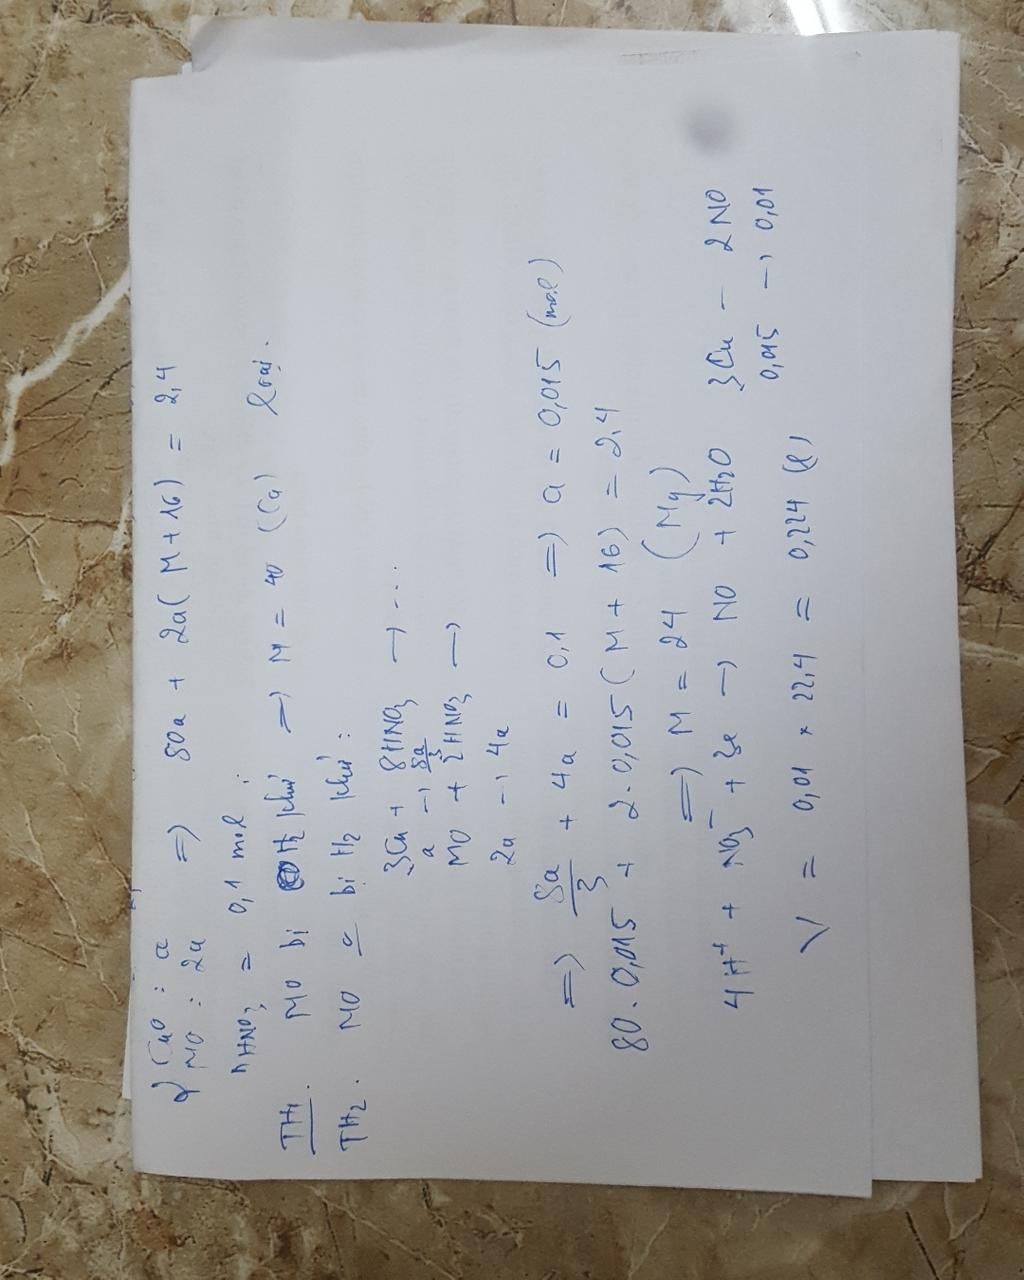 CuO : a
MO : 2a => 80a + 2a(M + 16) = 2,4
nHNO3 = 0,1 mol :
TH1. MO bị H2 khử → M = 40 (Ca) loại.
TH2. MO o bị H2 khử :
3Cu + 8HNO3 → ...
a → 8a/3
MO + 2HNO3 →
2a → 4a
=> 8a/3 + 4a = 0,1 => a = 0,015 (mol)
80 . 0,015 + 2 . 0,015 (M + 16) = 2,4
=> M = 24 (Mg)
4H+ + NO3- + 3e → NO + 2H2O 3Cu – 2NO
0,015 → 0,01
V = 0,01 × 22,4 = 0,224 (l)